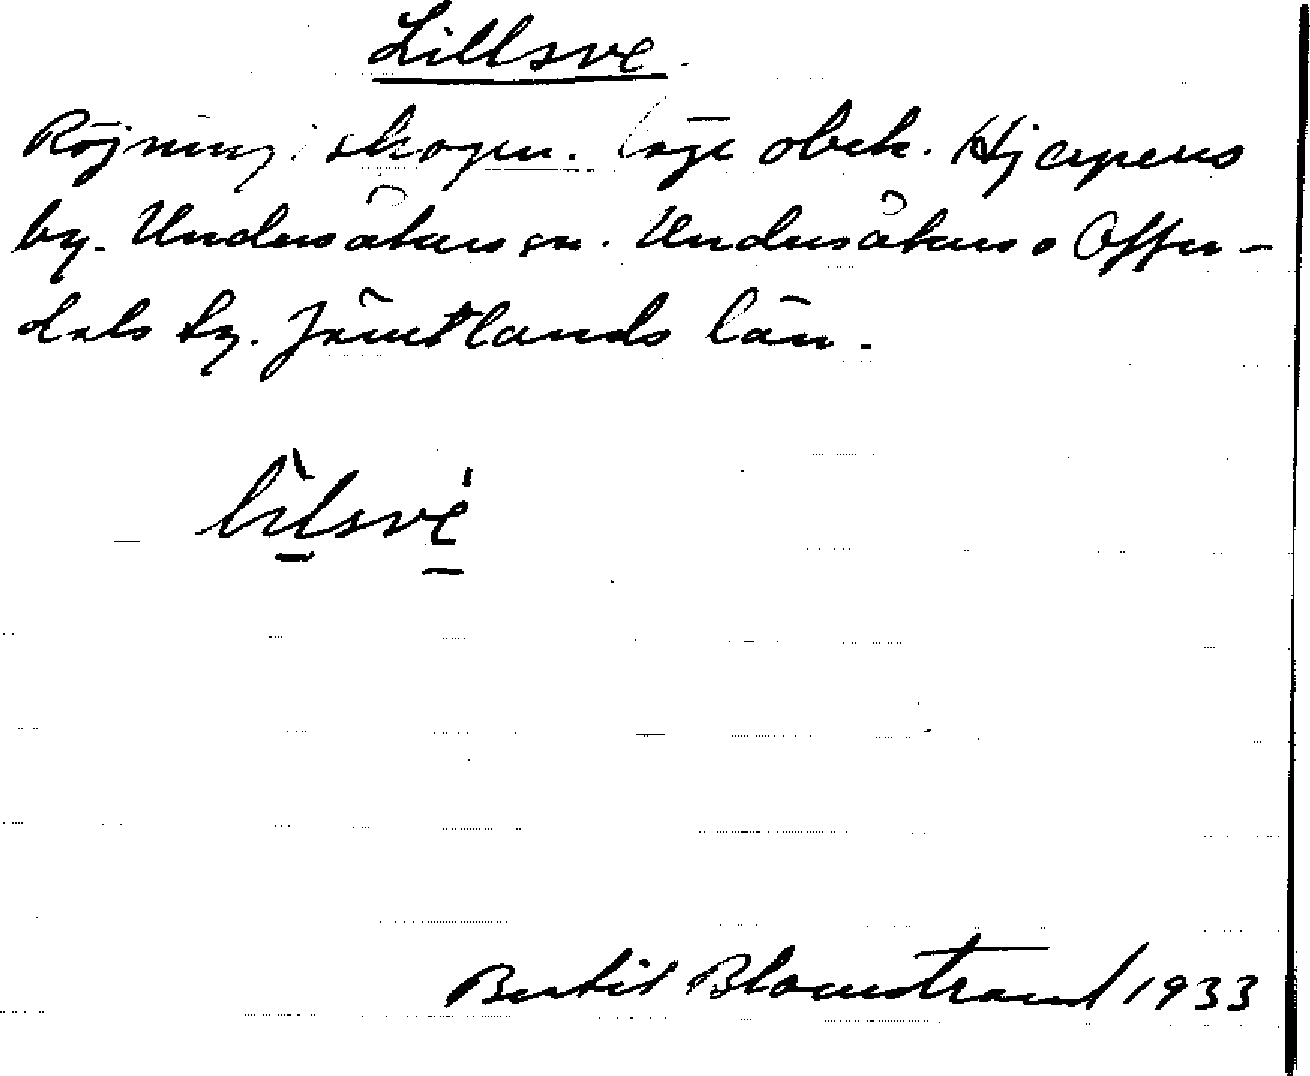 Lillsve.
Röjning i skogen. Läge obek. Hjerpens
by. Undersåkers sn. Undersåkers o Offer-
dals tg. Jämtlands län.
lìlsvé
Bertil Blomstrand 1933